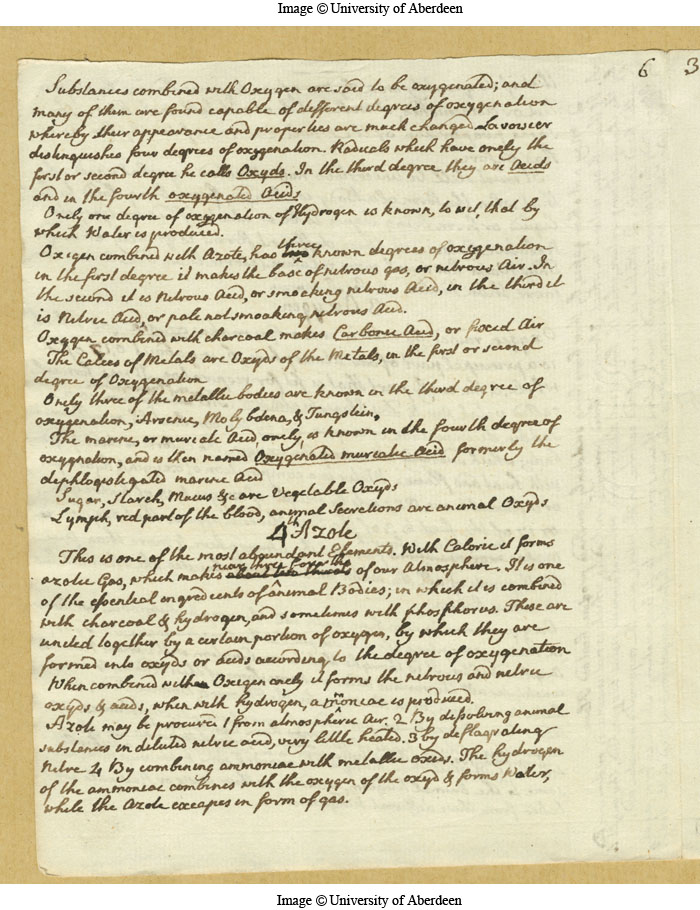 Image © University of Aberdeen
6 3
Substances combined with Oxygen are said to be oxygenated; and
many of them are found capable of different degrees of oxygenation
whereby their appearance and properties are much changed. Lavoisier
distinguishes four degrees of oxygenation. Radicals which have onely the
first or second degree he calls Oxyds. In the third degree they are Acids
and in the fourth oxygenated Acids
Onely one degree of oxygenation of Hydrogen is known, to wit, that by
which Water is produced.
Oxigen combined with Azote, has three known degrees of oxygenation
in the first degree it makes the base of nitrous gas, or nitrous Air. In
the second it is Nitrous Acid, or smocking nitrous Acid, in the third it
is Nitric Acid, or pale not smoaking nitrous Acid.
Oxygen combined with charcoal makes Carbonic Acid, or fixed Air
The Calces of Metals are Oxyds of the Metals, in the first or second
degree of Oxygenation
Onely three of the metallic bodies are known in the third degree of
oxygenation, Arsenic, Molybdena, & Tungstein,
The marine, or muriatic Acid, onely, is known in the fourth degree of
oxygnation, and is then named Oxygenated muriatic Acid formerly the
dephlogistigated marine Acid
Sugar, Starch, Mucus &c are Vegetable Oxyds
Lymph, red part of the blood, animal Secretions are animal Oxyds
4th Azote
This is one of the most abundant Elements. With Caloric it forms
azotic Gas, which makes near three fourths about two thirds of our Atmosphere. It is one
of the essential ingredients of animal Bodies; in which it is combined
with charcoal & hydrogen, and sometimes with phosphorus. These are
united together by a certain portion of oxygen, by which they are
formed into oxyds or acids according to the degree of oxygenation
When combined with Oxigen onely it forms the nitrous and nitric
oxyds & acids, when with hydrogen, ammoniac is produced.
Azote may be procured 1 from atmospheric Air. 2 By dissolving animal
substances in diluted nitric acid, very little heated. 3 by deflagrating
Nitre 4 By combining ammoniac with metallic oxyds. The hydrogen
of the ammoniac combines with the oxygen of the oxyd & forms Water,
while the Azote excapes in form of gas.
Image © University of Aberdeen